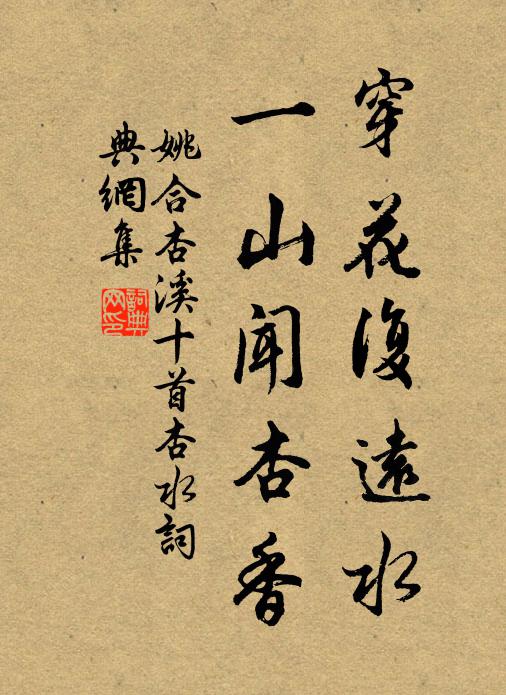 穿花復遠水
一山聞杏香
姚合杏溪十首杏水詞
典網集
詞典
网印